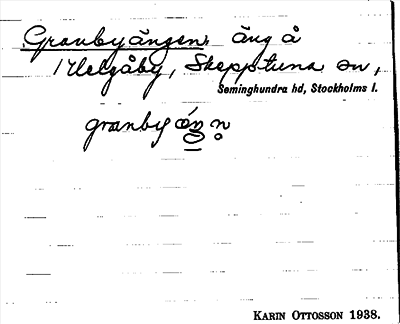 Granbyängen, äng å
1 Helgåby, Skepptuna sn,
Seminghundra hd, Stockholms l.
granby
KARIN OTTOSSON 1938.